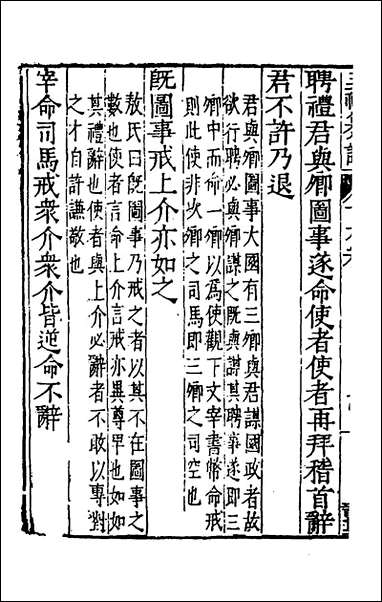 聘禮君與卿圖事遂命使者使者再拜稽首辭
君不許乃退
君與卿圖事大國有三卿與君謀國政者故
欲行聘必與卿謀之既與謀其聘事遂即三
卿中而命一卿以為使觀下文宰書幣命戒
則此使非次卿之司馬即三卿之司空也
既圖事戒上介亦如之
敖氏曰既圖事乃戒之者以其不在圖事之
數也使者言命上介言戒亦異尊卑也如如
其禮辭也使者與上介必辭者不敢以專對
之才自許謙敬也
宰命司馬戒衆介衆介皆逆命不辭